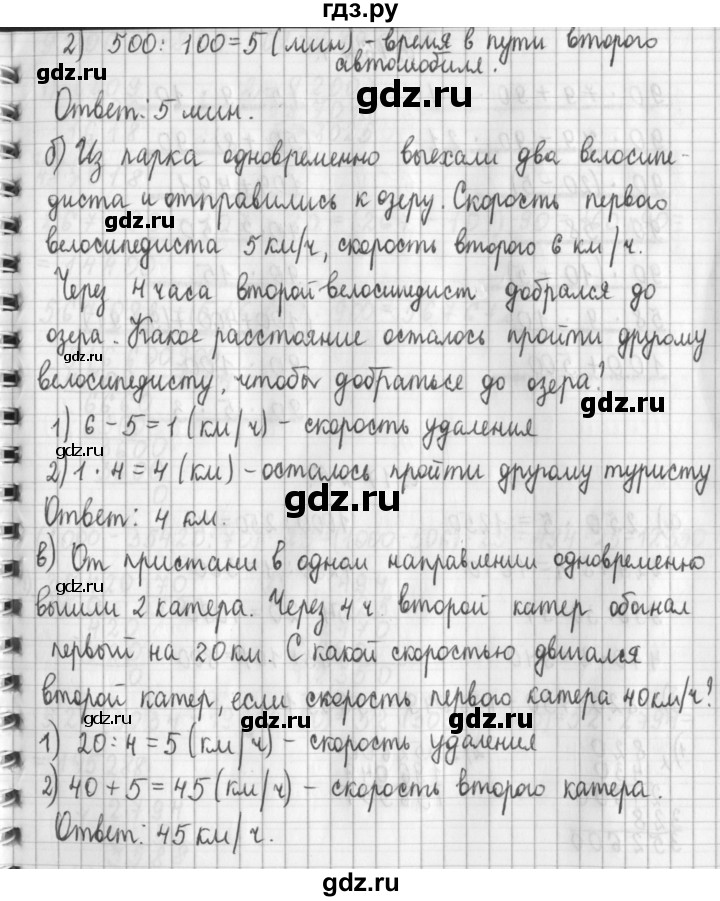 гдз.ру
2) 500 : 100 = 5 (мин) - время в пути второго
автомобиля.
gdz.ru
Ответ: 5 мин.
б) Из парка одновременно выехали два велосипе-
диста и отправились к озеру. Скорость первого
gdz.ru
gdz.ru
велосипедиста 5 км/ч, скорость второго 6 км/ч.
Через 4 часа второй велосипедист добрался до
озера. Какое расстояние осталось пройти другому
gdz.ru
велосипедисту, чтобы добраться до озера?
gdz.ru
1) 6 - 5 = 1 (км/ч) - скорость удаления
gdz.ru
2) 1 · 4 = 4 (км) - осталось пройти другому туристу
gdz.ru
Ответ: 4 км.
в) От пристани в одном направлении одновременно
gdz.ru
вышли 2 катера. Через 4 ч второй катер обогнал
gdz.ru
первый на 20 км. С какой скоростью двигался
второй катер, если скорость первого катера 40 км/ч?
gdz.ru
gdz.ru
gdz.ru
1) 20 : 4 = 5 (км/ч) - скорость удаления
2) 40 + 5 = 45 (км/ч) - скорость второго катера.
gdz.ru
gdz.ru
Ответ: 45 км/ч.
gdz.ru
gdz.ru